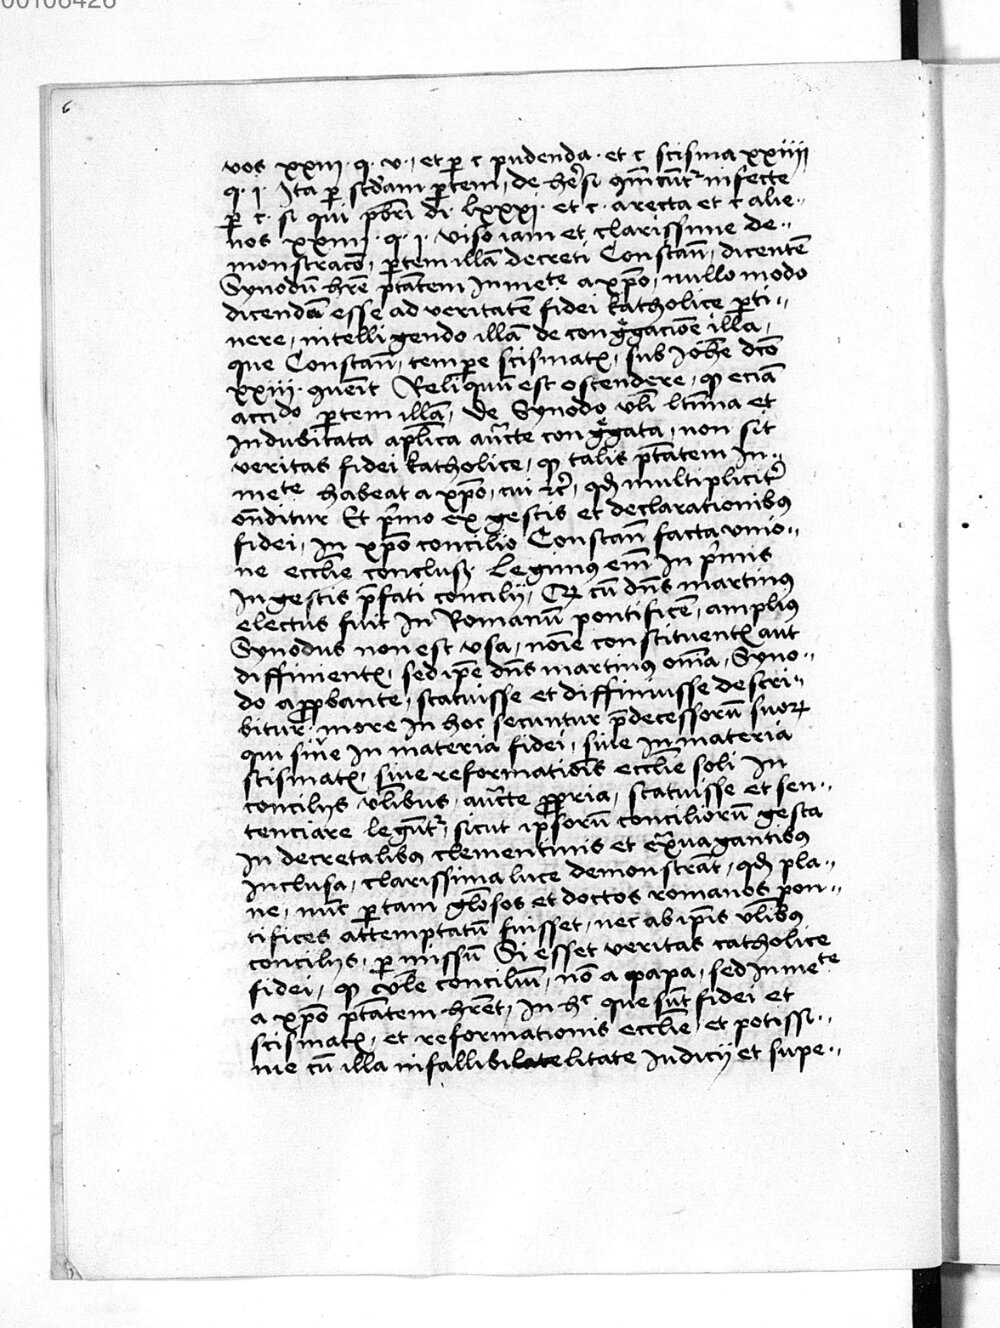 00106426
6
vos xxiii · q · v · et per c pudenda · et c scisma xxiiii
q · i · Ita per scdam partem, de hesi quincunt infecte
per c · si qui pbri di lxxxi · et c · arecta et c alie-
nos xxiiii · q · i · viso iam et clarissime de-
monstracõ, partem illã decreti Constañ, dicentẽ
Synodũ hrẽ ptãtem Inmete a xpõ, nullo modo
dicendã esse ad veritatẽ fidei katholice perti-
nere, intelligendo illã de congregaciõe illa,
que Constañ, tempere scismatis, sub Johe dcõ
xxiii · quenit Reliquũ est ostendere, quod eciã
accido partem illã, de Synodo vli ltima et
Indubitata aplica aucte congregata, non sit
veritas fidei katholice, quod talis ptãtem In-
mete habeat a xpõ, cui etc, quod multipliciter
onditur Et primo ex gestis et declarationibus
fidei, In xpõ concilio Constañ facta vnio-
ne ecclie conclusis Legimus enim In primis
In gestis prefati concilij, Quod cũ dns martinus
electus fuit In Romanũ pontificẽ, amplius
Synodus non est vsa, noie constituentis aut
diffinientis, sed ipe dns martinus oma, Syno-
do approbante, statuisse et diffiniuisse descri-
bitur more In hoc secuntur predecessorũ suorum
qui siue In materia fidei, siue In materia
scismatis, siue reformationis ecclie soli In
concilijs vlibus, aucte propria, statuisse et sen-
tenciare leguntur, sicut ipsorũ conciliorũ gesta
In decretalibus clementinis et extrauagantibus
Inclusa, clarissima luce demonstrãt, quod pla-
ne, nũc per tam gliosos et doctos romanos pon-
tifices attemptatũ fuisset, nec ab ipis vlibus
concilijs, permissũ Si esset veritas catholice
fidei, quod vle conciliũ, nõ a papa, sed Inmete
a xpõ ptãtem hrẽt, In hc que sũt fidei et
scismatis, et reformationis ecclie, et potissi-
me cũ illa infallibilatelitate Iudicij et supe-